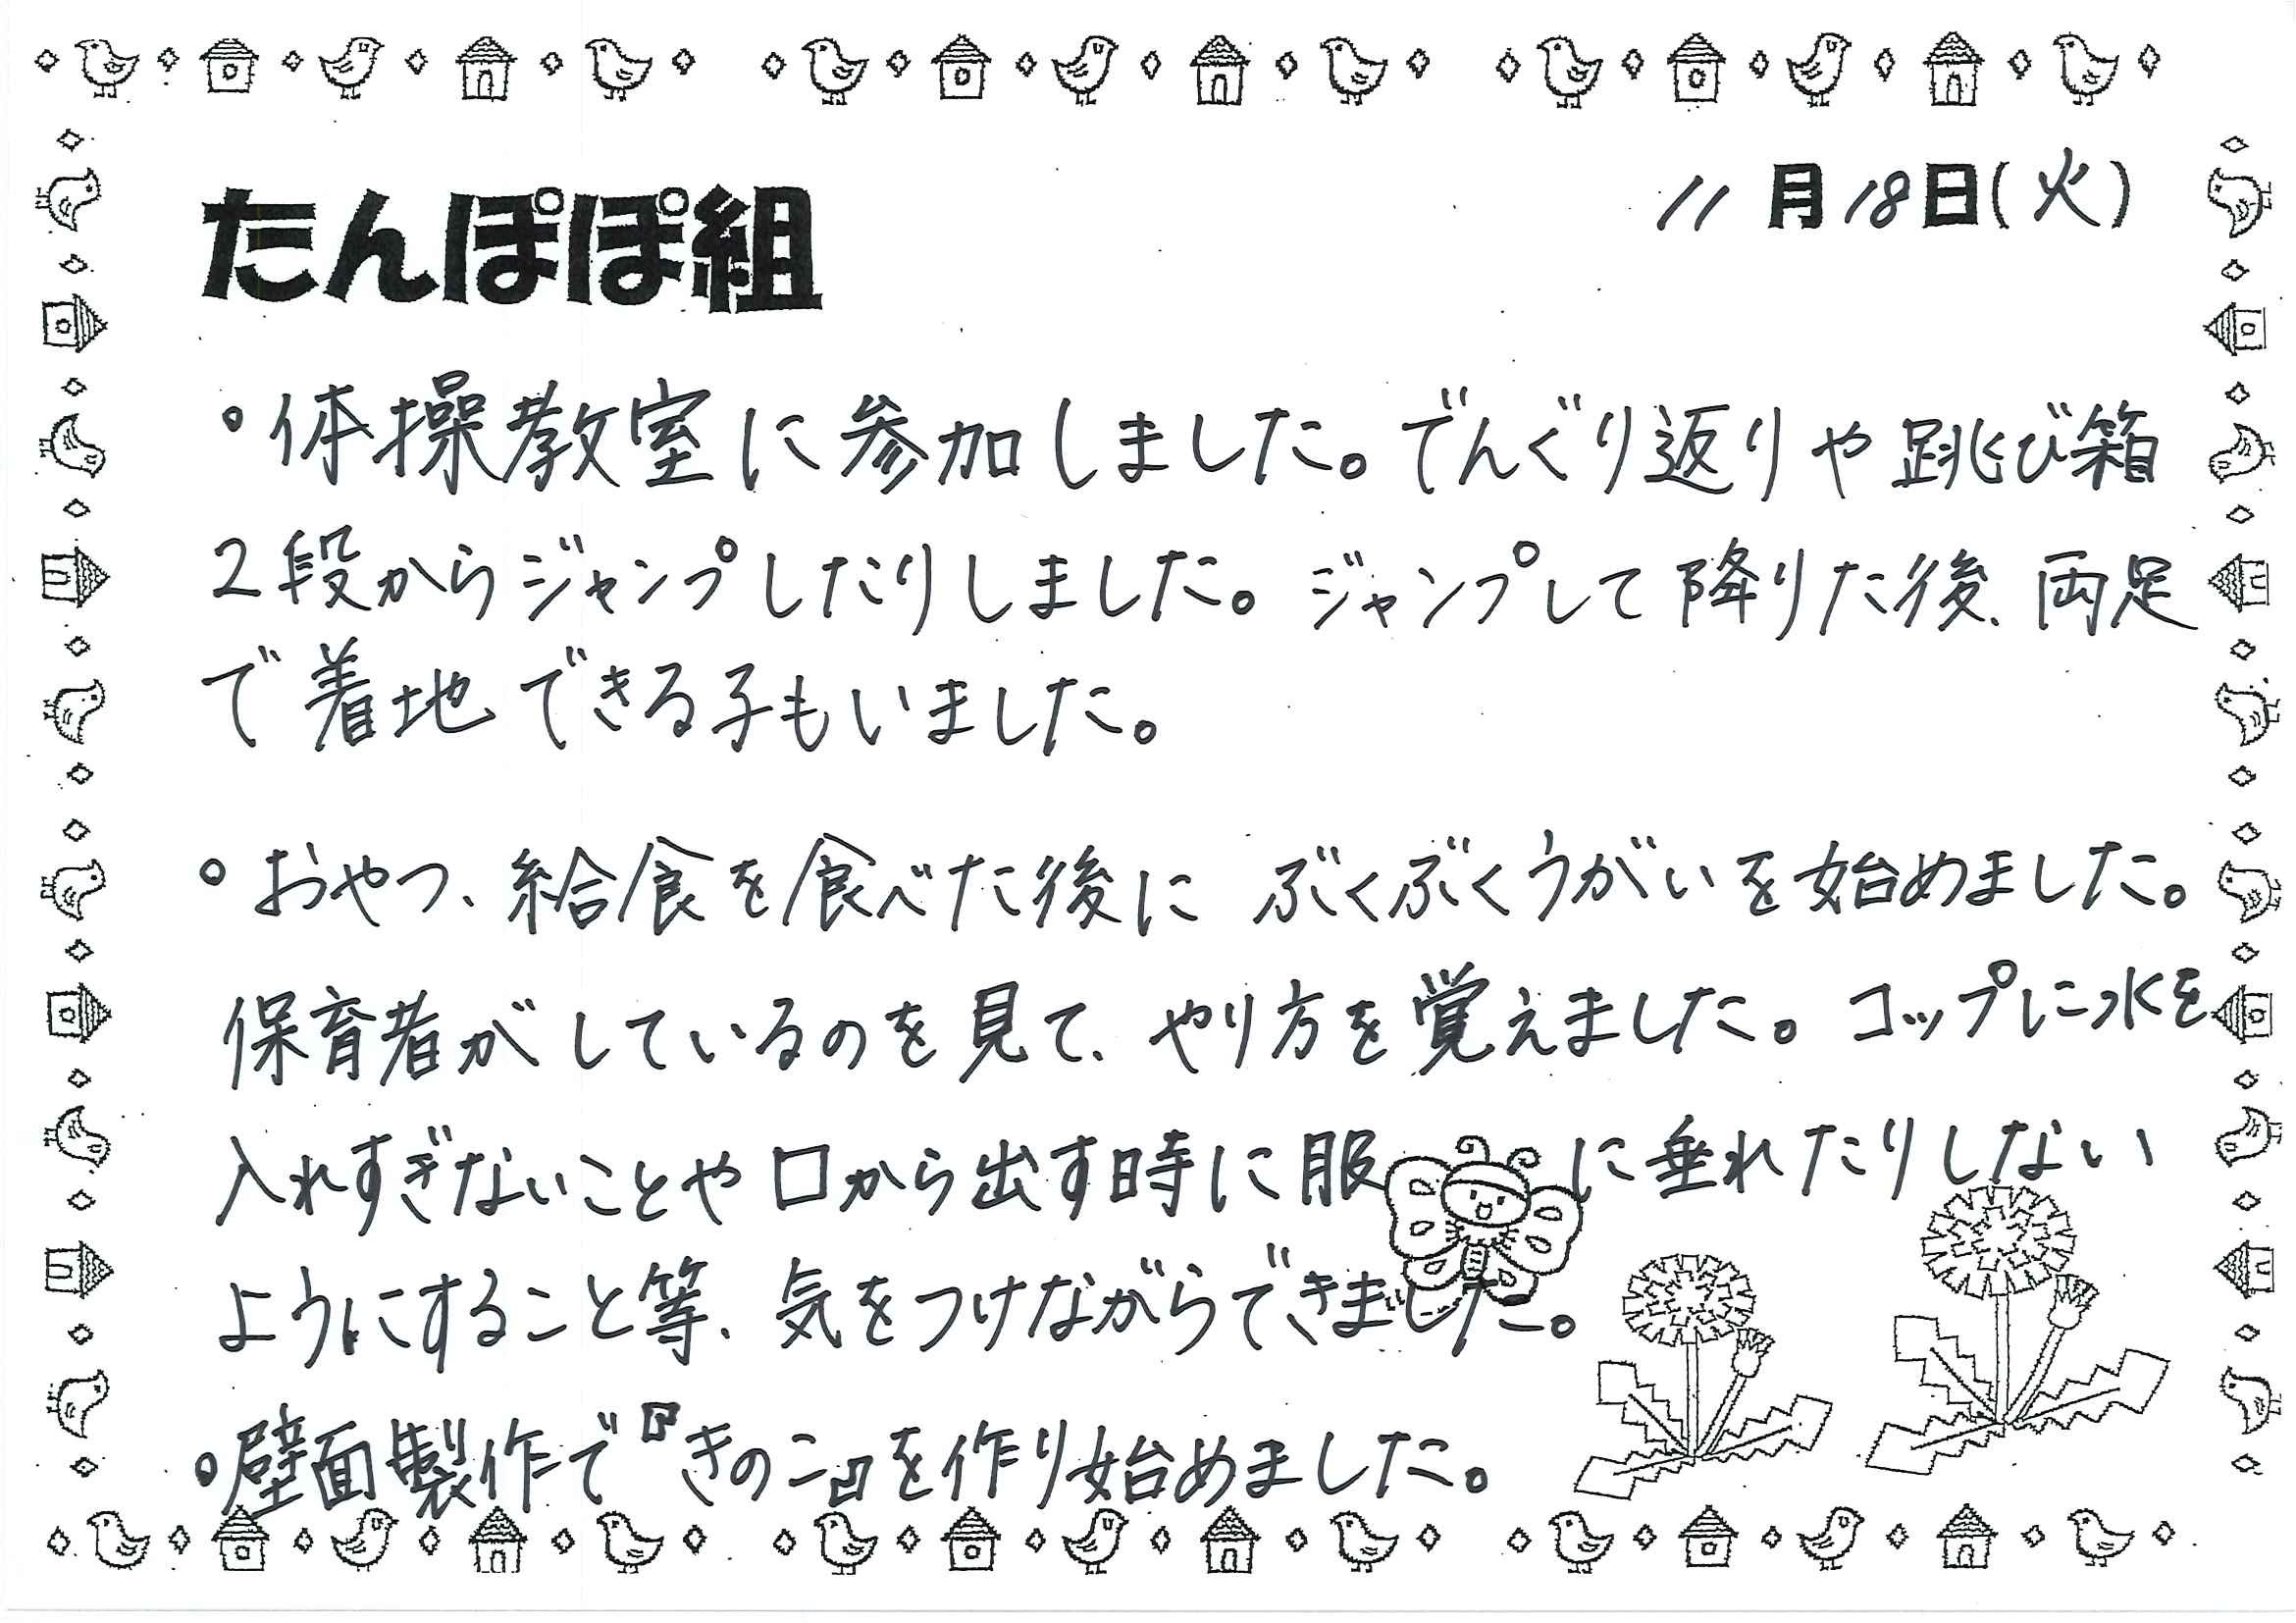 11月18日(火)
たんぽぽ組
・体操教室に参加しました。でんぐり返りや跳び箱
2段からジャンプしたりしました。ジャンプして降りた後、両足
で着地できる子もいました。
・おやつ、給食を食べた後に ぶくぶくうがいを始めました。
保育者がしているのを見て、やり方を覚えました。コップに水を
入れすぎないことや口から出す時に服に垂れたりしない
ようにすること等、気をつけながらできました。
・壁面製作で『きのこ』を作り始めました。